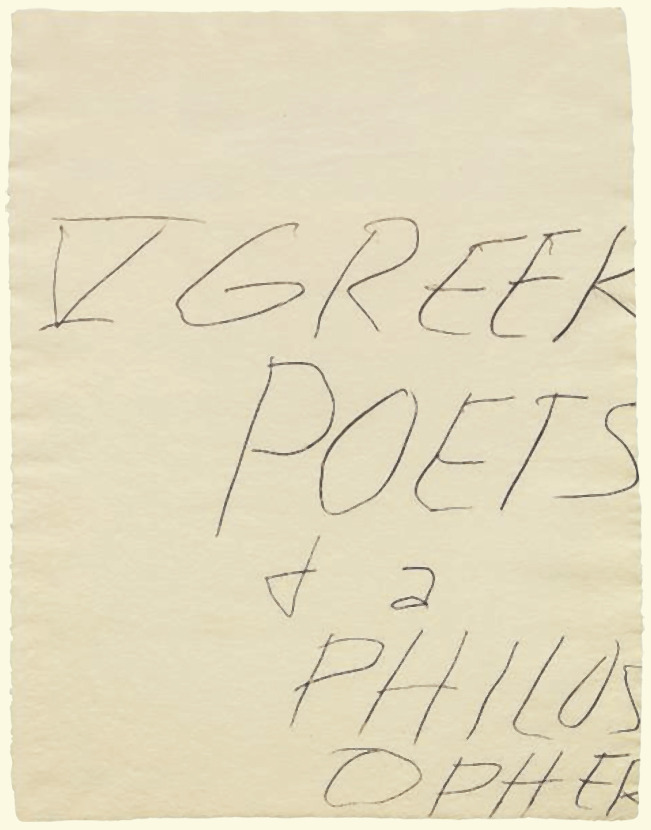 V GREEK
POETS
& a
PHILOS
OPHER